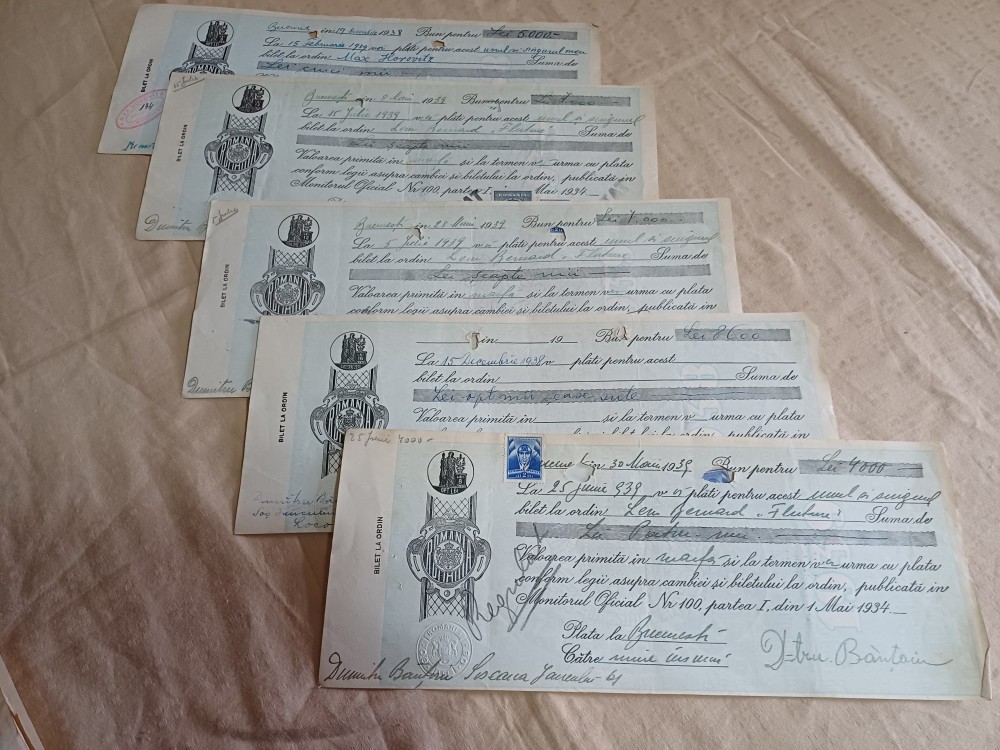 în 19 1938 Bun pentru Lei 5.000 -
La 15 Februarie 1939 voi plăti pentru acest unul și singurul meu
bilet la ordin Max Horovitz Suma de
Lei cinci mii
BILET LA ORDIN
194
București în 8 Mai 1939 Bun pentru Lei 7.000 -
La 15 Iulie 1939 voi plăti pentru acest unul și singurul
bilet la ordin Leon Bernard „Fluture” Suma de
Lei șeapte mii
Valoarea primită în marfă și la termen va urma cu plata
conform legii asupra cambiei și biletului la ordin, publicată in
Monitorul Oficial Nr 100, partea I, Mai 1934.
BILET LA ORDIN
ROMANIA
Dumitru
București în 28 Mai 1939 Bun pentru Lei 7.000 -
La 5 Iulie 1939 voi plăti pentru acest unul și singurul
bilet la ordin Leon Bernard „Fluture” Suma de
Lei șeapte mii
Valoarea primită în marfă și la termen va urma cu plata
conform legii asupra cambiei și biletului la ordin, publicată in
BILET LA ORDIN
ROMANIA
Dumitru
în 19 Bun pentru Lei 8600
La 15 Decembrie 1938 v plăti pentru acest
bilet la ordin Suma de
Lei optmii șease sute
Valoarea primită în și la termen v urma cu plata
BILET LA ORDIN
ROMANIA
Dumitru
25 Junie 4000 -
în 30 Maiu 1939 Bun pentru Lei 4000 -
La 25 Junie 939 voi plăti pentru acest unul și singurul
bilet la ordin Leon Bernard „Fluture” Suma de
Lei Patru mii
Valoarea primită în marfă și la termen va urma cu plata
conform legii asupra cambiei și biletului la ordin, publicată in
Monitorul Oficial Nr 100, partea I, din 1 Mai 1934.
Plata la București
Către mine însumi
BILET LA ORDIN
ROMANIA
D-tru Bănțoiu
Dumitru Șoseaua 61